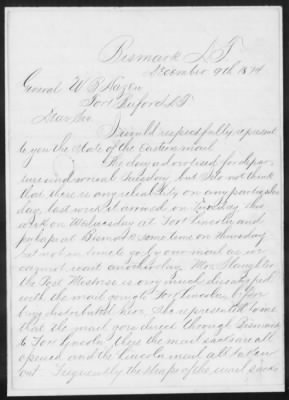 Bismark D T
December 9th 1874
General W B Hazen
Fort Buford D T
Dear Sir
I would respectfully represent
to you the state of the eastern mail
The day advertised for depar
ture and arrival Tuesday, but I do not think
that there is any reliability on any particular
day. last week it arrived on Tuesday this
week on Wednesday at Fort Lincoln and
perhaps at Bismark some time on Thursday
but not in time to go by our mail as we
cannot wait another day Mrs Slaughter
the Post Mistress is very much dissatisfied
with the mail going to Fort Lincoln before
being distributed here. She represented to me
that the mail goes direct through Bismark
to Fort Lincoln, there the mail sacks are all
opened and the Lincoln mail all taken
out. Frequently the straps of the mail sacks